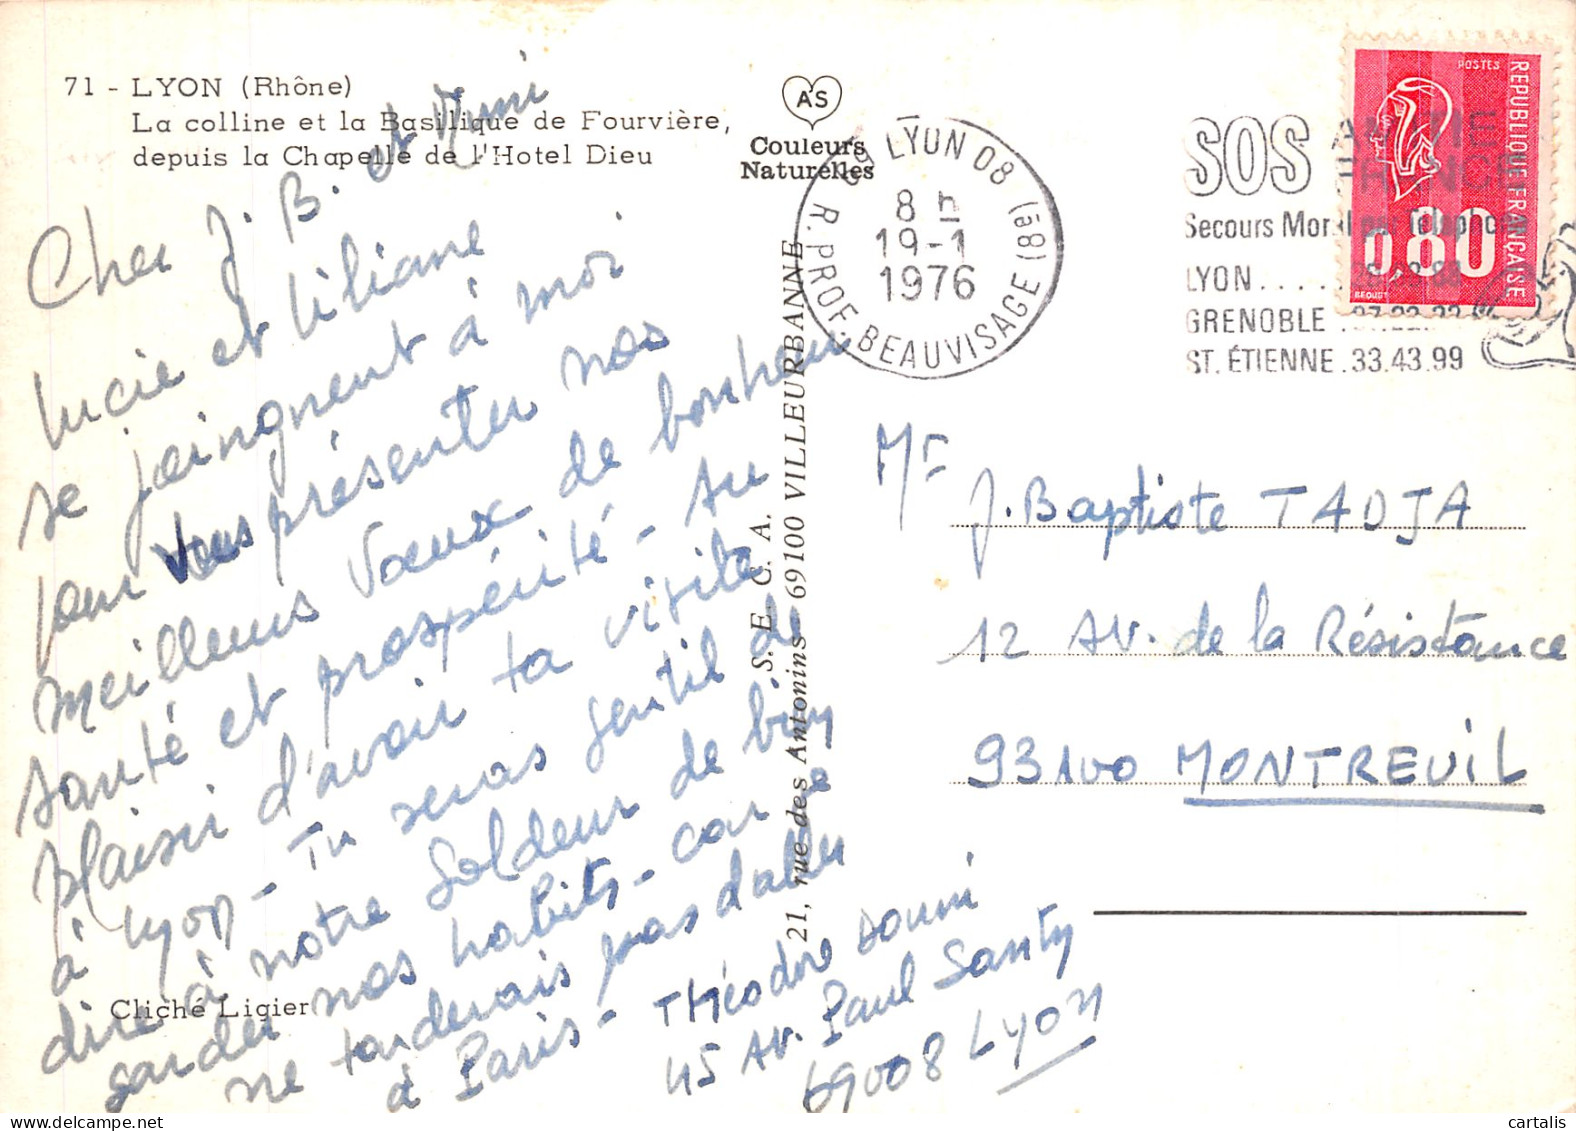 71 - LYON (Rhône)
La colline et la Basilique de Fourvière,
depuis la Chapelle de l'Hotel Dieu
AS
Couleurs
Naturelles
LYON 08 (8è)
R. PROF. BEAUVISAGE
8 h
19-1
1976
SOS AMITIE
FRANCE
Secours Moral par Téléphone
LYON.....
GRENOBLE .
ST. ÉTIENNE .33.43.99
POSTES
REPUBLIQUE FRANÇAISE
0,80
BEQUET
Cher J. B. et Mimi
Lucie et Liliane
se joingnent à moi
pour vous présenter nos
meilleurs vœux de bonheur
santé et prospérité - Au
plaisir d'avoir ta visite
à Lyon - Tu seras gentil de
dire à notre soldeur de bien
garder nos habits - car je
ne tarderais pas d'aller
à Paris - Théodore
45 Av. Paul Santy
69008 Lyon
Cliché Ligier
S. E. C. A.
21, rue des Antonins - 69100 VILLEURBANNE
Mr J. Baptiste TADJA
12 Av. de la Résistance
93100 MONTREUIL
cartalis